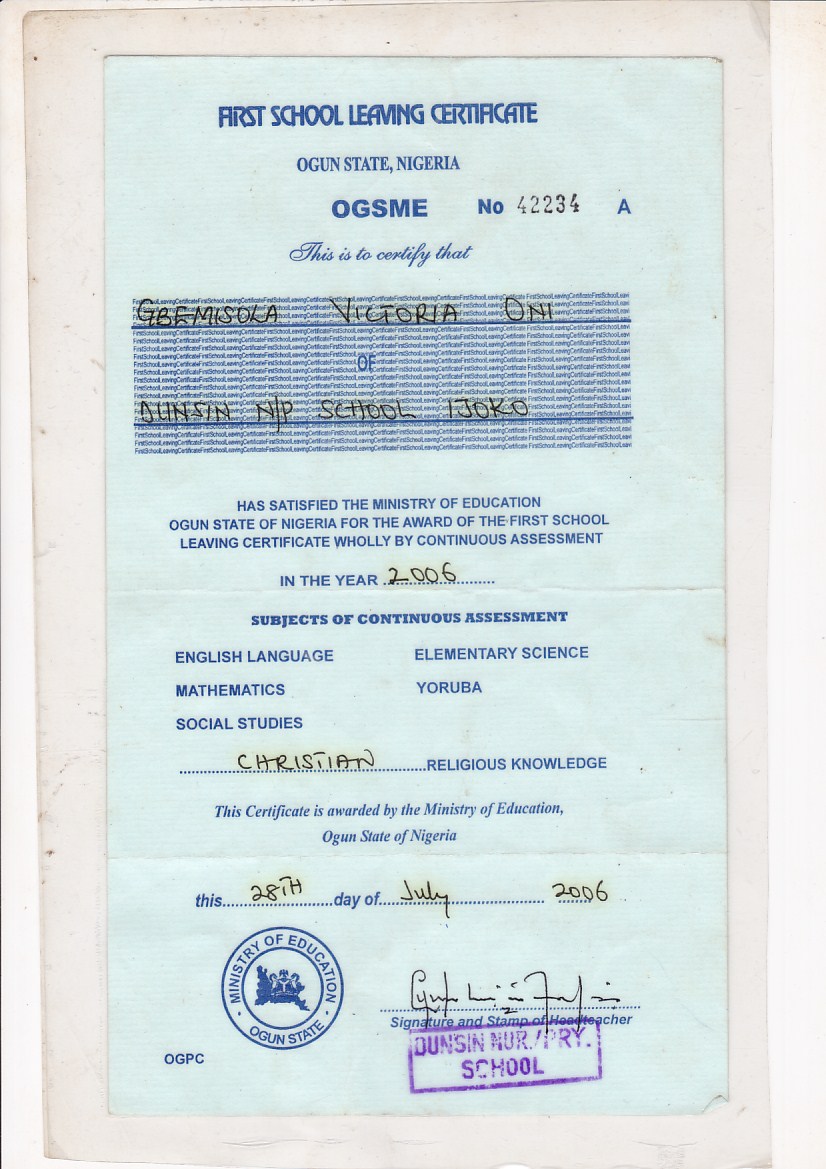 FIRST SCHOOL LEAVING CERTIFICATE
OGUN STATE, NIGERIA
OGSME No 42234 A
This is to certify that
GBEMISOLA VICTORIA ONI
OF
DUNSIN N/P SCHOOL IJOKO
HAS SATISFIED THE MINISTRY OF EDUCATION
OGUN STATE OF NIGERIA FOR THE AWARD OF THE FIRST SCHOOL
LEAVING CERTIFICATE WHOLLY BY CONTINUOUS ASSESSMENT
IN THE YEAR 2006
SUBJECTS OF CONTINUOUS ASSESSMENT
ENGLISH LANGUAGE ELEMENTARY SCIENCE
MATHEMATICS YORUBA
SOCIAL STUDIES
CHRISTIAN RELIGIOUS KNOWLEDGE
This Certificate is awarded by the Ministry of Education,
Ogun State of Nigeria
this 28TH day of July 2006
MINISTRY OF EDUCATION
OGUN STATE
Signature and Stamp of Headteacher
DUNSIN NUR./PRY.
SCHOOL
OGPC